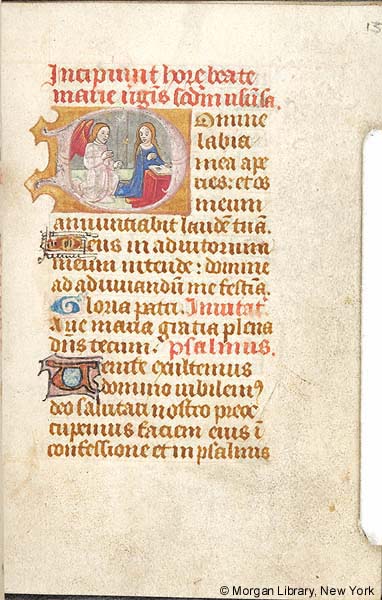 13
Incipiunt hore beate
marie ũgĩs scdm usũ sa.
Domine
labia
mea ape
ries: et os
meum
annuntiabit laudẽ tuã.
Deus in adiutorium
meum intende: domine
ad adiuuandũ me festĩa.
Gloria patri. Inuitat.
Aue maria gratia plena
dñs tecum. psalmus.
Uenite exultemus
domino iubilemꝰ
deo salutari nostro preoc
cupemus faciem eius ĩ
confessione et in psalmis
© Morgan Library, New York